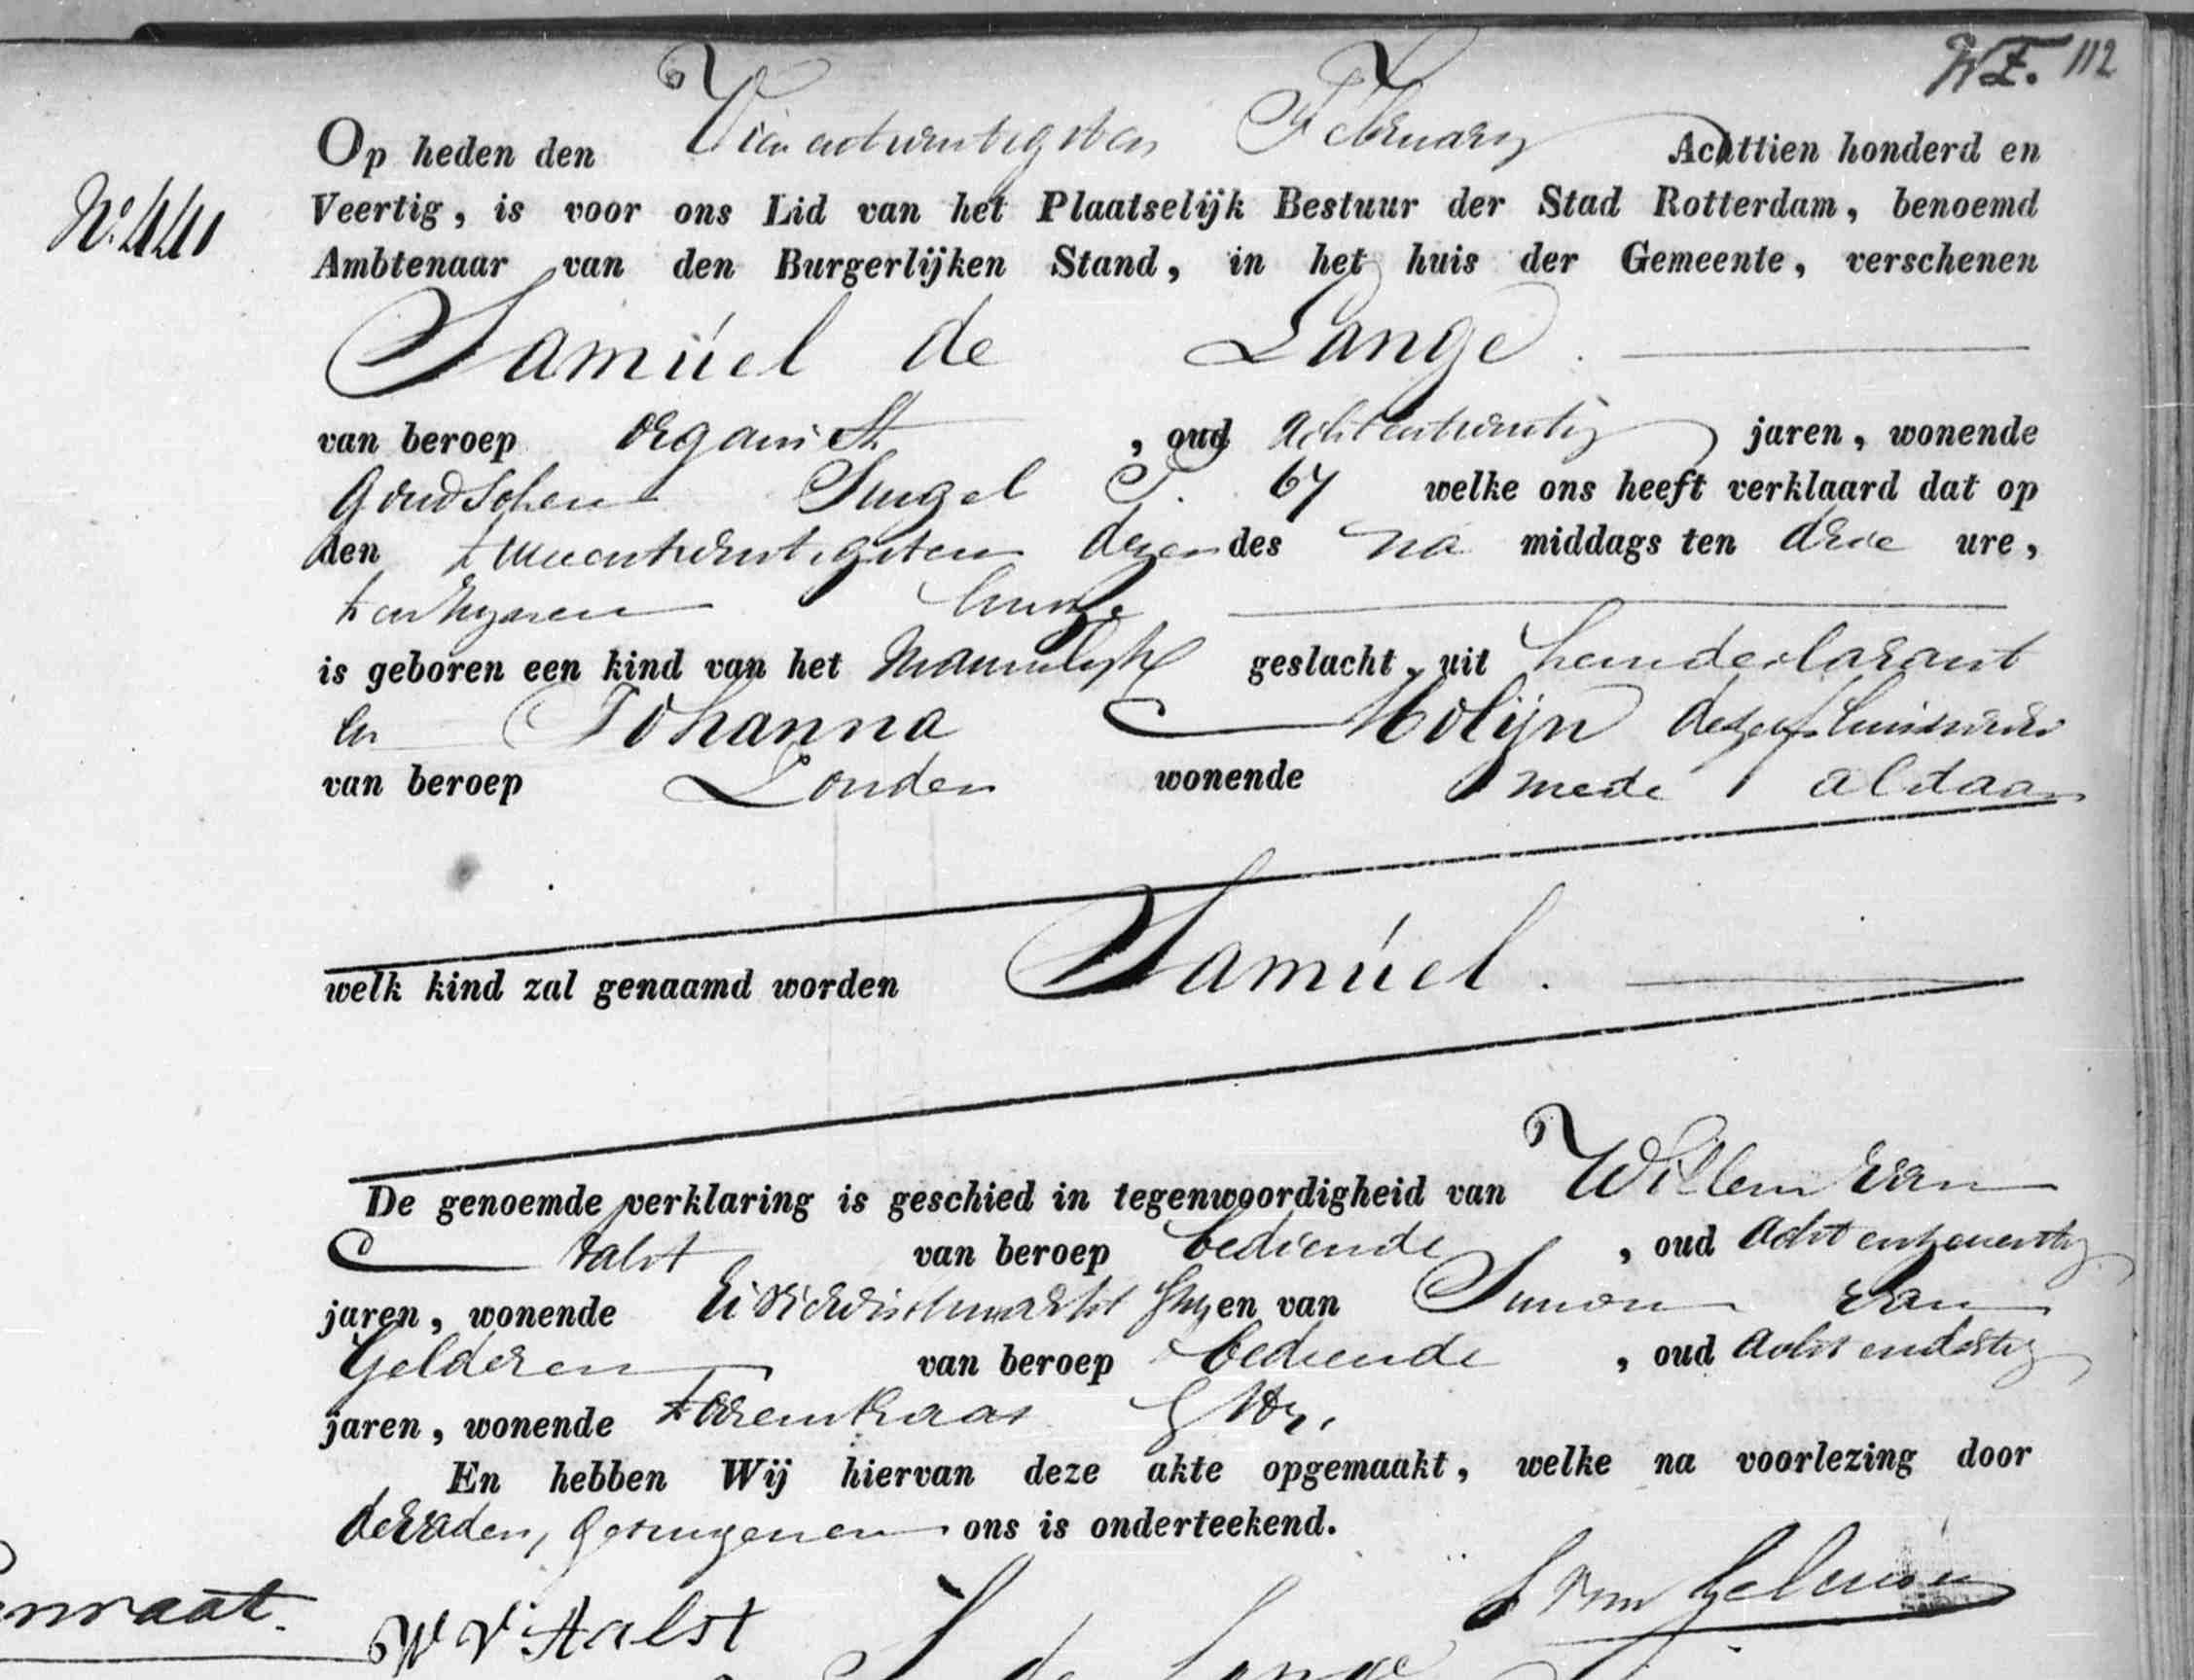 W.F. 112
Op heden den Vierentwintigsten February Achttien honderd en
No. 441
Veertig, is voor ons Lid van het Plaatselijk Bestuur der Stad Rotterdam, benoemd
Ambtenaar van den Burgerlijken Stand, in het huis der Gemeente, verschenen
Samúel de Lange.
van beroep organist, oud achtentwintig jaren, wonende
Goudschen Singel 67 welke ons heeft verklaard dat op
den tweeentwintigsten dezer des na middags ten drie ure,
ten zynen huize
is geboren een kind van het Mannelyk geslacht, uit hem declarant
en Johanna Molijn deszelfs huisvrouw
van beroep Zonder wonende mede aldaar
welk kind zal genaamd worden Samúel.
De genoemde verklaring is geschied in tegenwoordigheid van Willem van
Aalst van beroep bediende, oud acht en
jaren, wonende en van Simon van
Gelderen van beroep bediende, oud acht en dertig
jaren, wonende Torenstraat
En hebben Wij hiervan deze akte opgemaakt, welke na voorlezing door
de Vader, getuigen en ons is onderteekend.
S van Gelderen
nraat.
W V Aalst
S de Lange